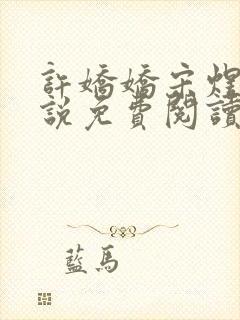 許嬌嬌宋煜
說免費閱讀
藍馬